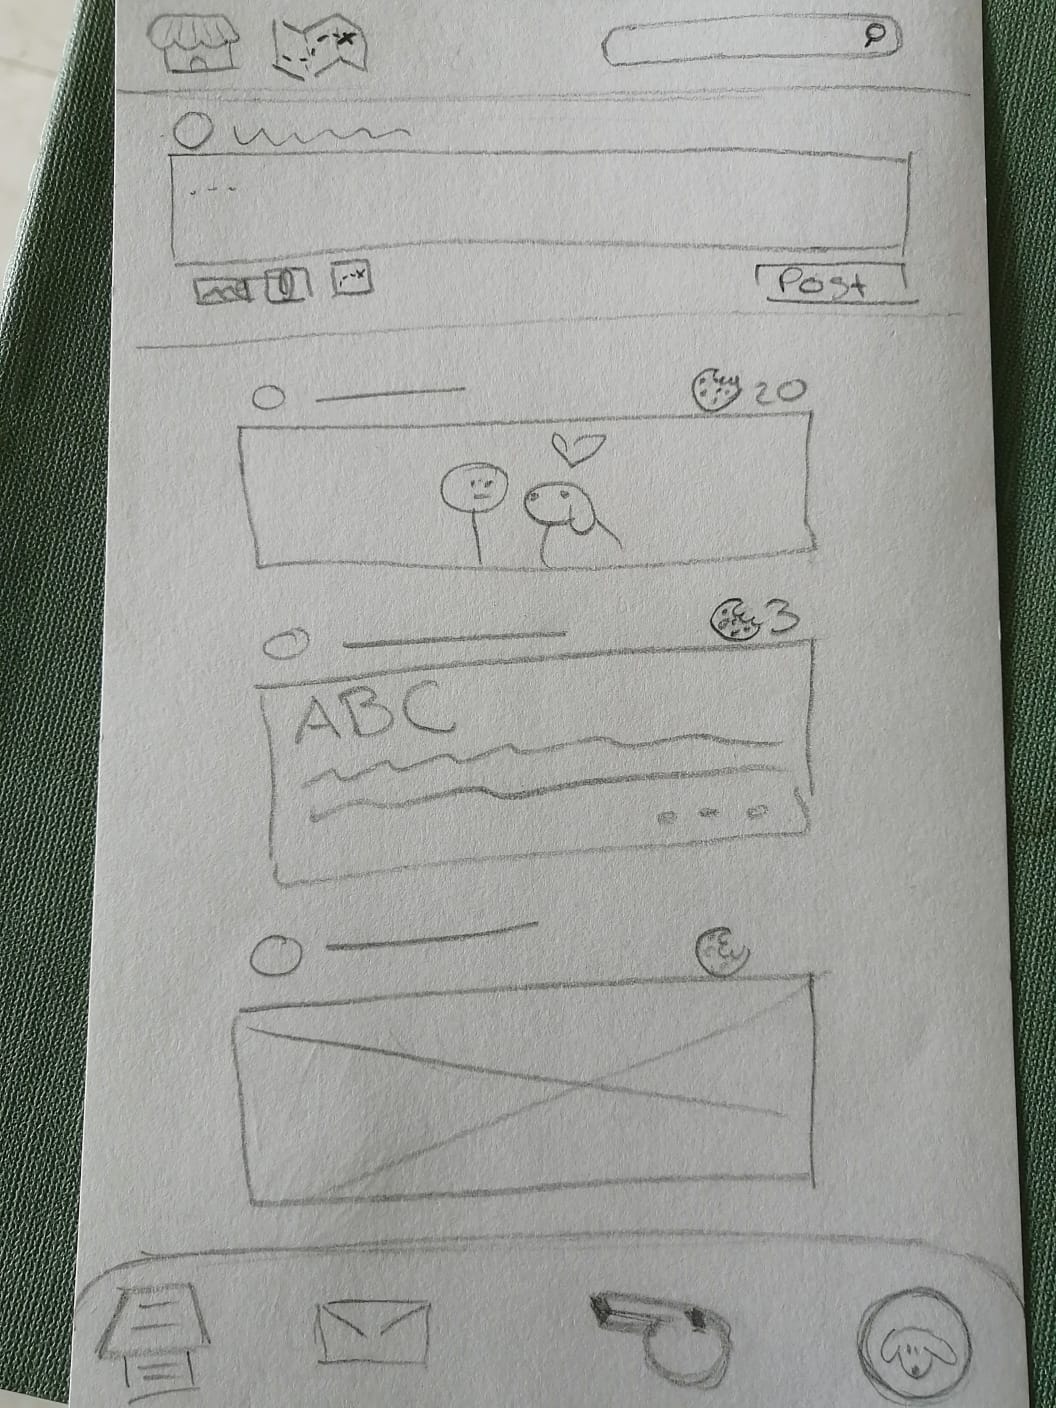 Post
20
3
ABC